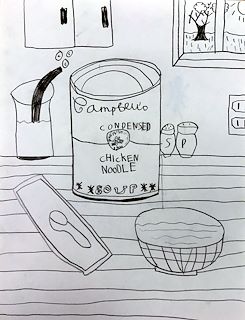 Campbell's
CONDENSED
CHICKEN
NOODLE
SOUP
S P